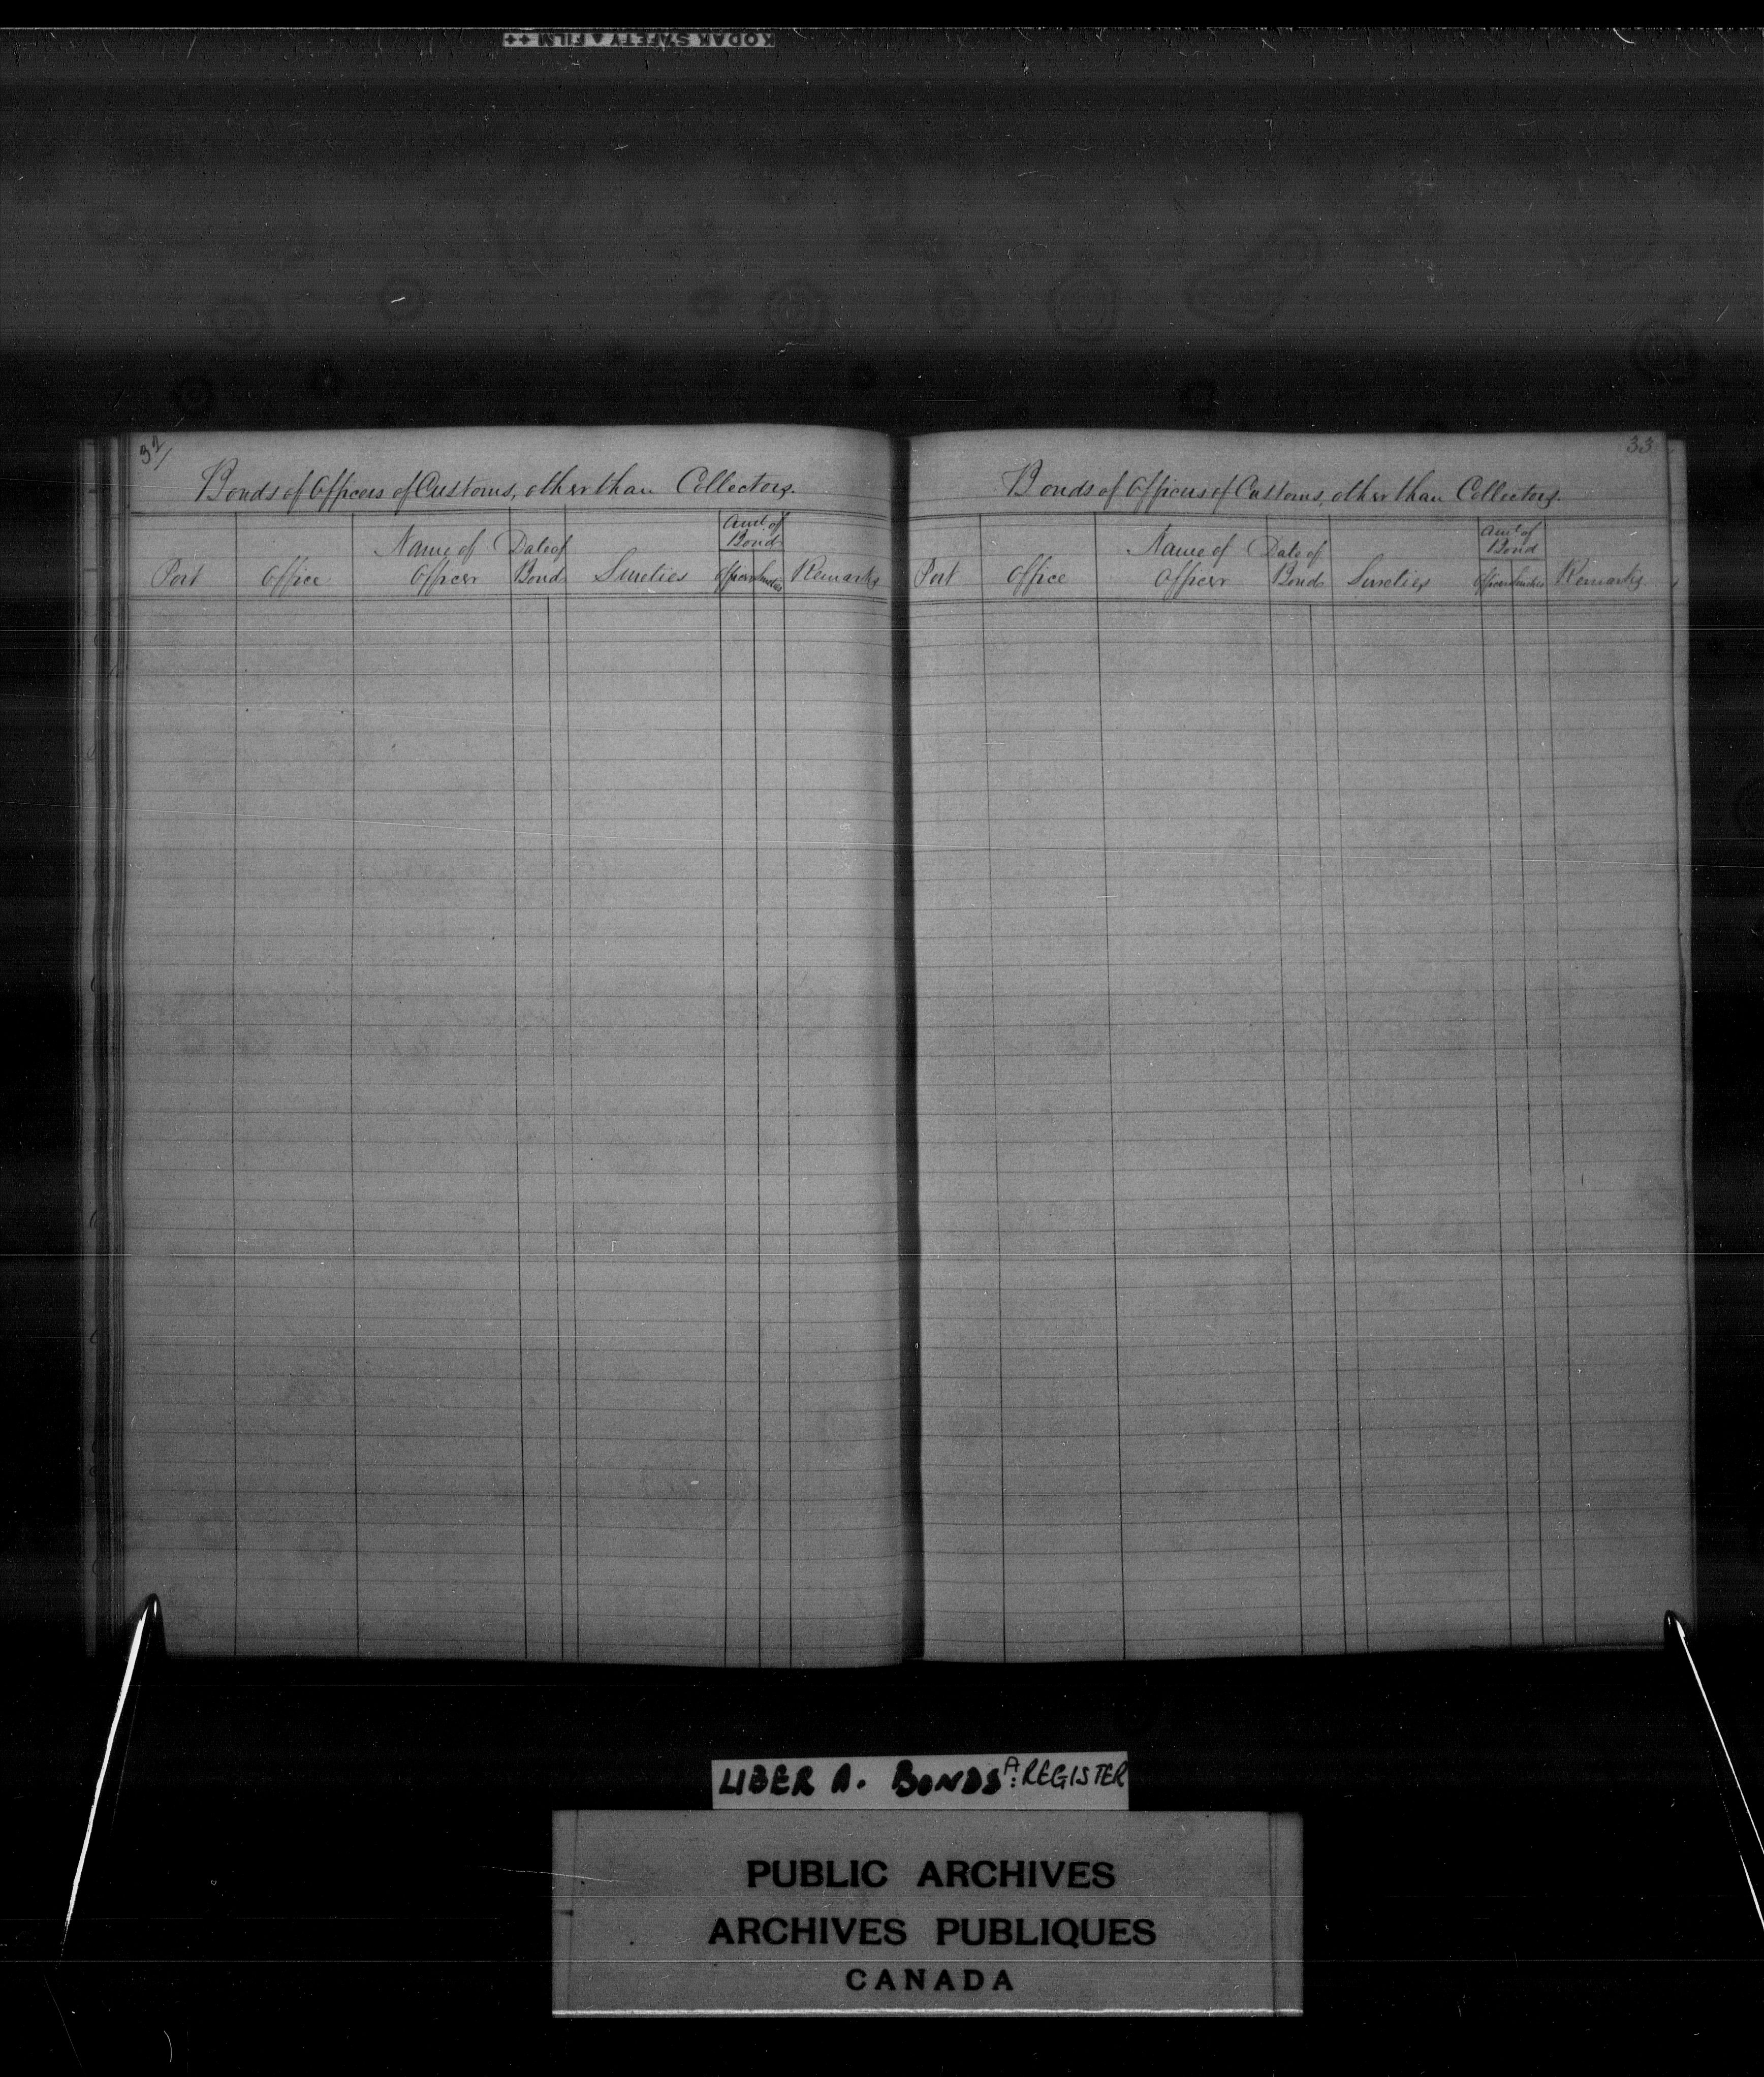 KODAK SAFETY FILM ++
32/
Bonds of Officers of Customs, other than Collectors.
Port Office Name of Officer Date of Bond Sureties Amt. of Bond Officer Sureties Remarks
33
Bonds of Officers of Customs, other than Collectors.
Port Office Name of Officer Date of Bond Sureties Amt. of Bond Officer Sureties Remarks
LIBER A. BONDS A: REGISTER
PUBLIC ARCHIVES
ARCHIVES PUBLIQUES
CANADA